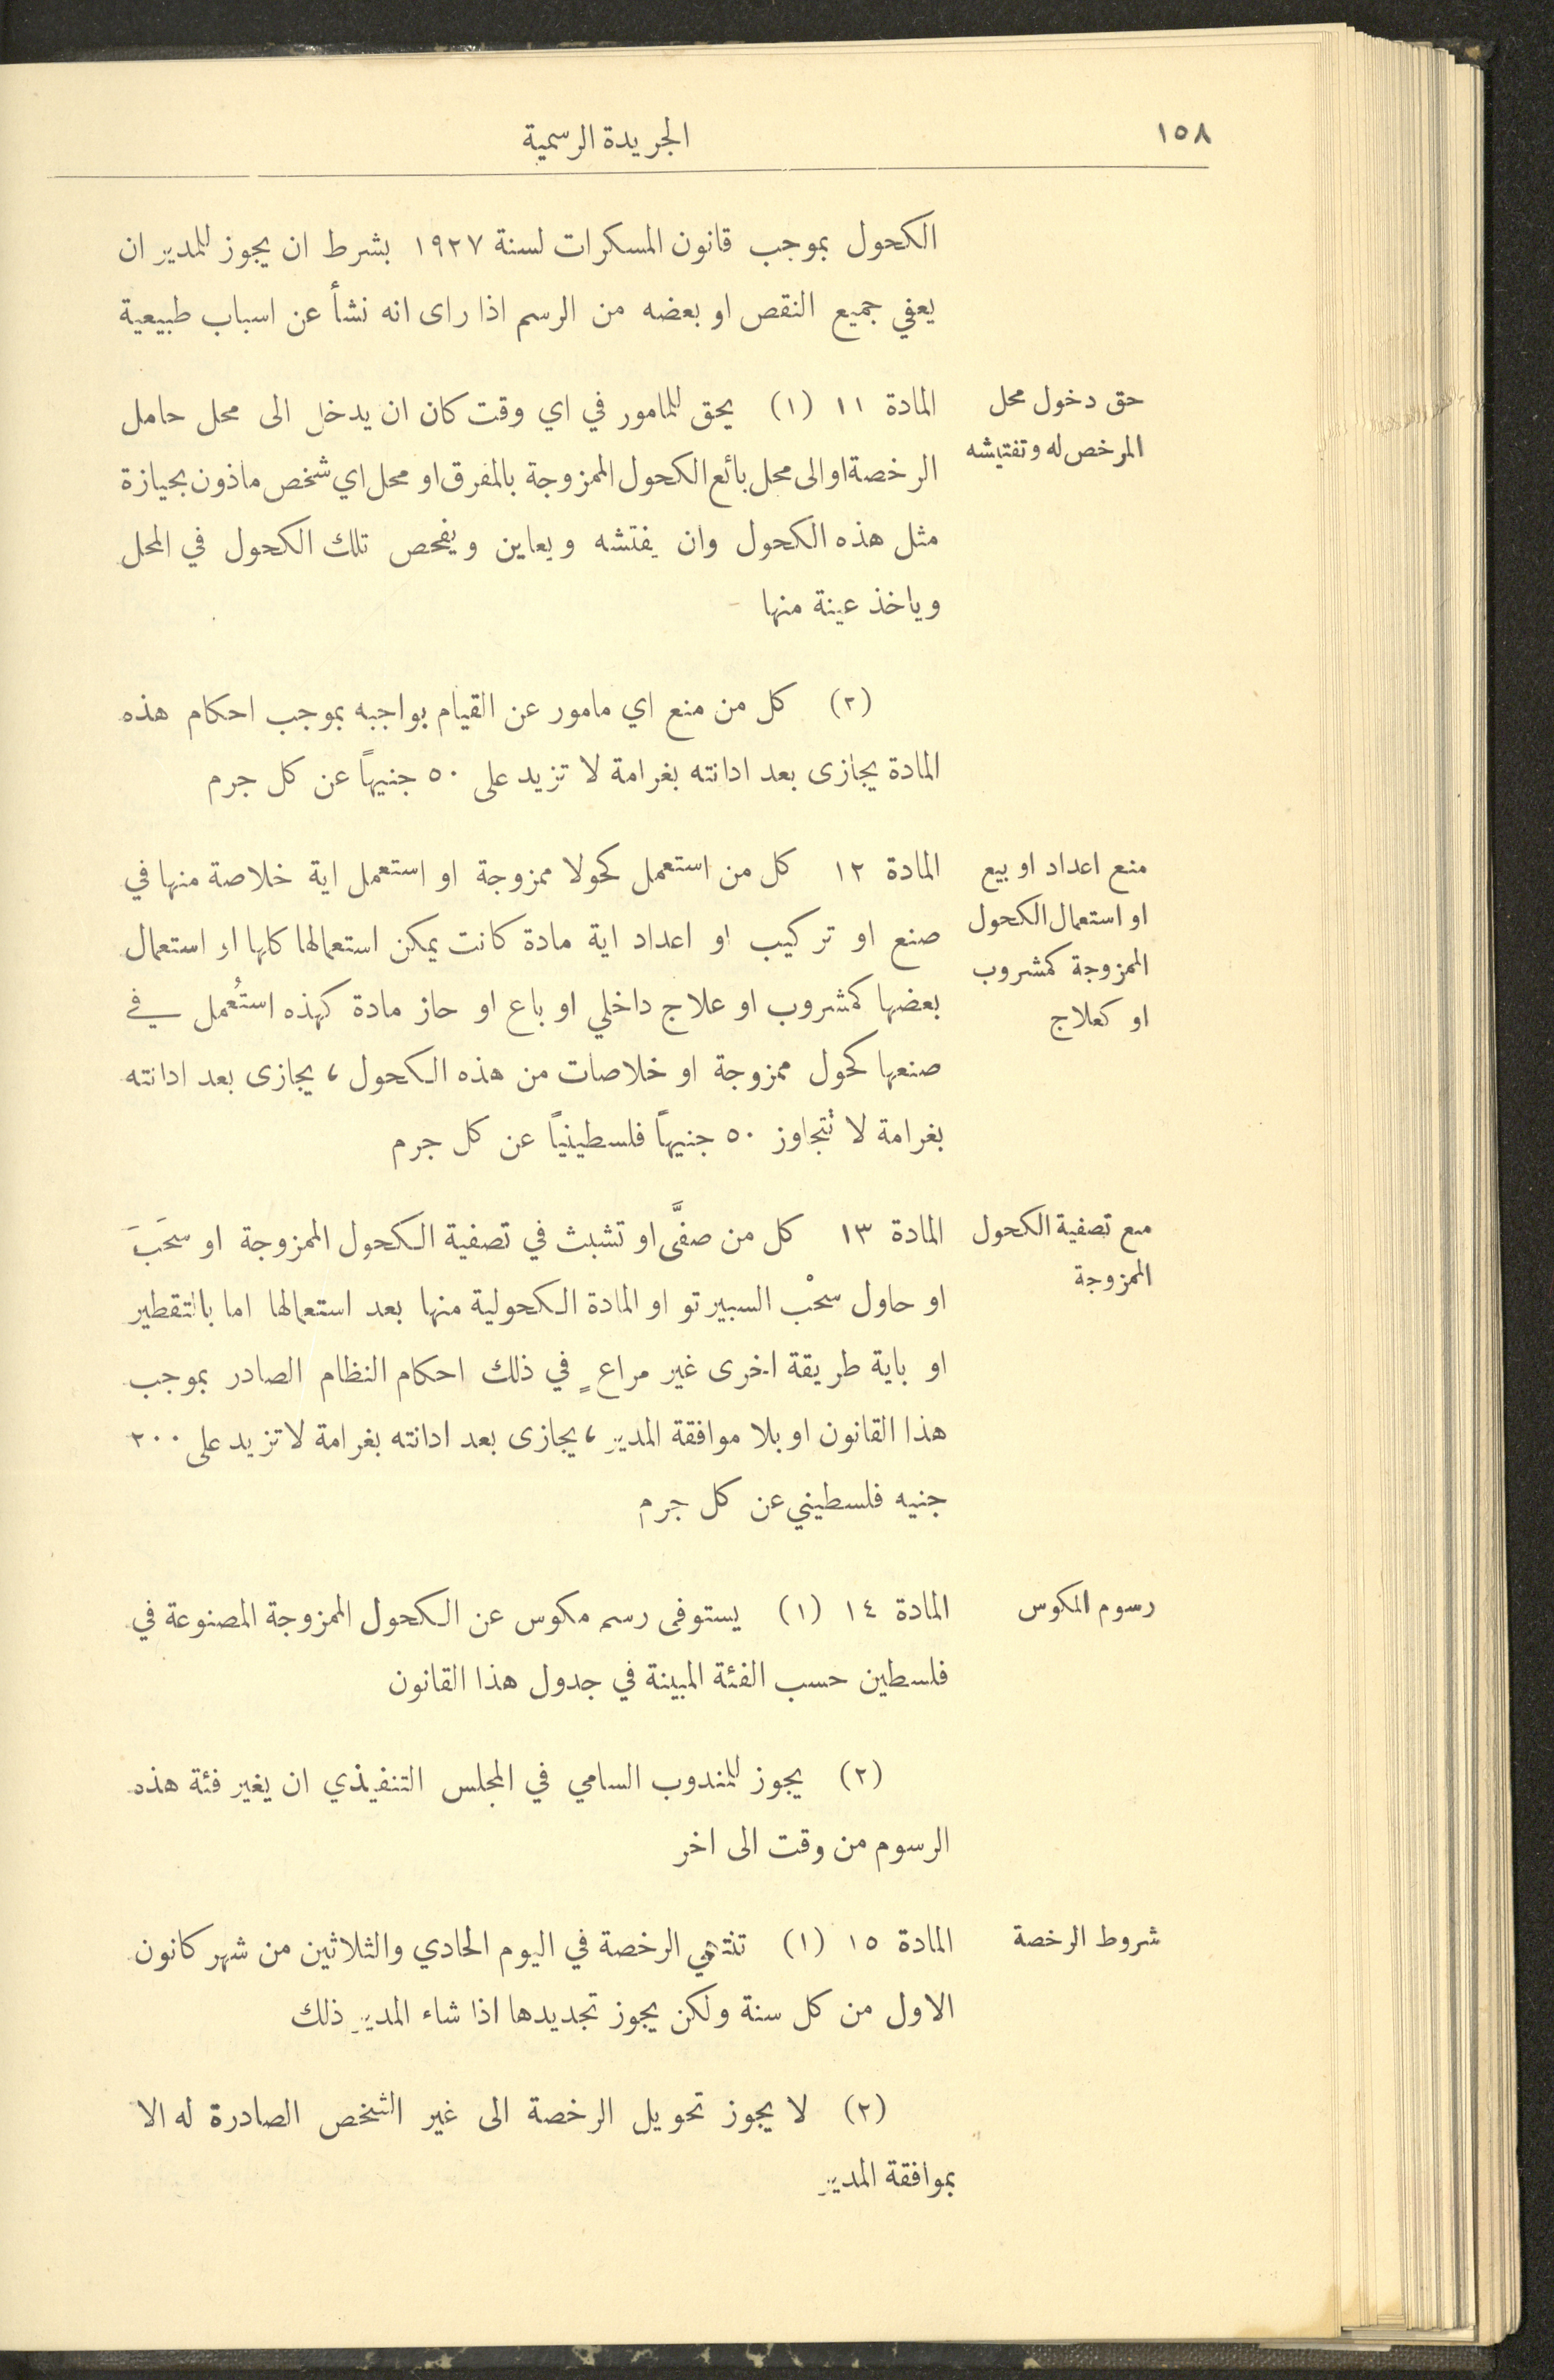 ١٥٨
الجريدة الرسمية
الكحول بموجب قانون المسكرات لسنة ١٩٢٧ بشرط ان يجوز للمدير ان
يعفي جميع النقص او بعضه من الرسم اذا راى انه نشأ عن اسباب طبيعية
حق دخول محل
المرخص له وتفتيشه
المادة ١١ (١) يحق للمامور في اي وقت كان ان يدخل الى محل حامل
الرخصة او الى محل بائع الكحول الممزوجة بالمفرق او محل اي شخص ماذون بحيازة
مثل هذه الكحول وان يفتشه ويعاين ويفحص تلك الكحول في المحل
وياخذ عينة منها
(٢) كل من منع اي مامور عن القيام بواجبه بموجب احكام هذه
المادة يجازى بعد ادانته بغرامة لا تزيد على ٥٠ جنيهاً عن كل جرم
منع اعداد او بيع
او استعمال الكحول
الممزوجة كمشروب
او كعلاج
المادة ١٢ كل من استعمل كحولا ممزوجة او استعمل اية خلاصة منها في
صنع او تركيب او اعداد اية مادة كانت يمكن استعمالها كلها او استعمال
بعضها كمشروب او علاج داخلي او باع او حاز مادة كهذه استُعمل في
صنعها كحول ممزوجة او خلاصات من هذه الكحول، يجازى بعد ادانته
بغرامة لا تتجاوز ٥٠ جنيهاً فلسطينياً عن كل جرم
منع تصفية الكحول
الممزوجة
المادة ١٣ كل من صفَّى او تشبث في تصفية الكحول الممزوجة او سحَبَ
او حاول سحْب السبيرتو او المادة الكحولية منها بعد استعمالها اما بالتقطير
او باية طريقة اخرى غير مراعٍ في ذلك احكام النظام الصادر بموجب
هذا القانون او بلا موافقة المدير، يجازى بعد ادانته بغرامة لا تزيد على ٢٠٠
جنيه فلسطيني عن كل جرم
رسوم المكوس
المادة ١٤ (١) يستوفى رسم مكوس عن الكحول الممزوجة المصنوعة في
فلسطين حسب الفئة المبينة في جدول هذا القانون
(٢) يجوز للمندوب السامي في المجلس التنفيذي ان يغير فئة هذه
الرسوم من وقت الى اخر
شروط الرخصة
المادة ١٥ (١) تنتهي الرخصة في اليوم الحادي والثلاثين من شهر كانون
الاول من كل سنة ولكن يجوز تجديدها اذا شاء المدير ذلك
(٢) لا يجوز تحويل الرخصة الى غير الشخص الصادرة له الا
بموافقة المدير